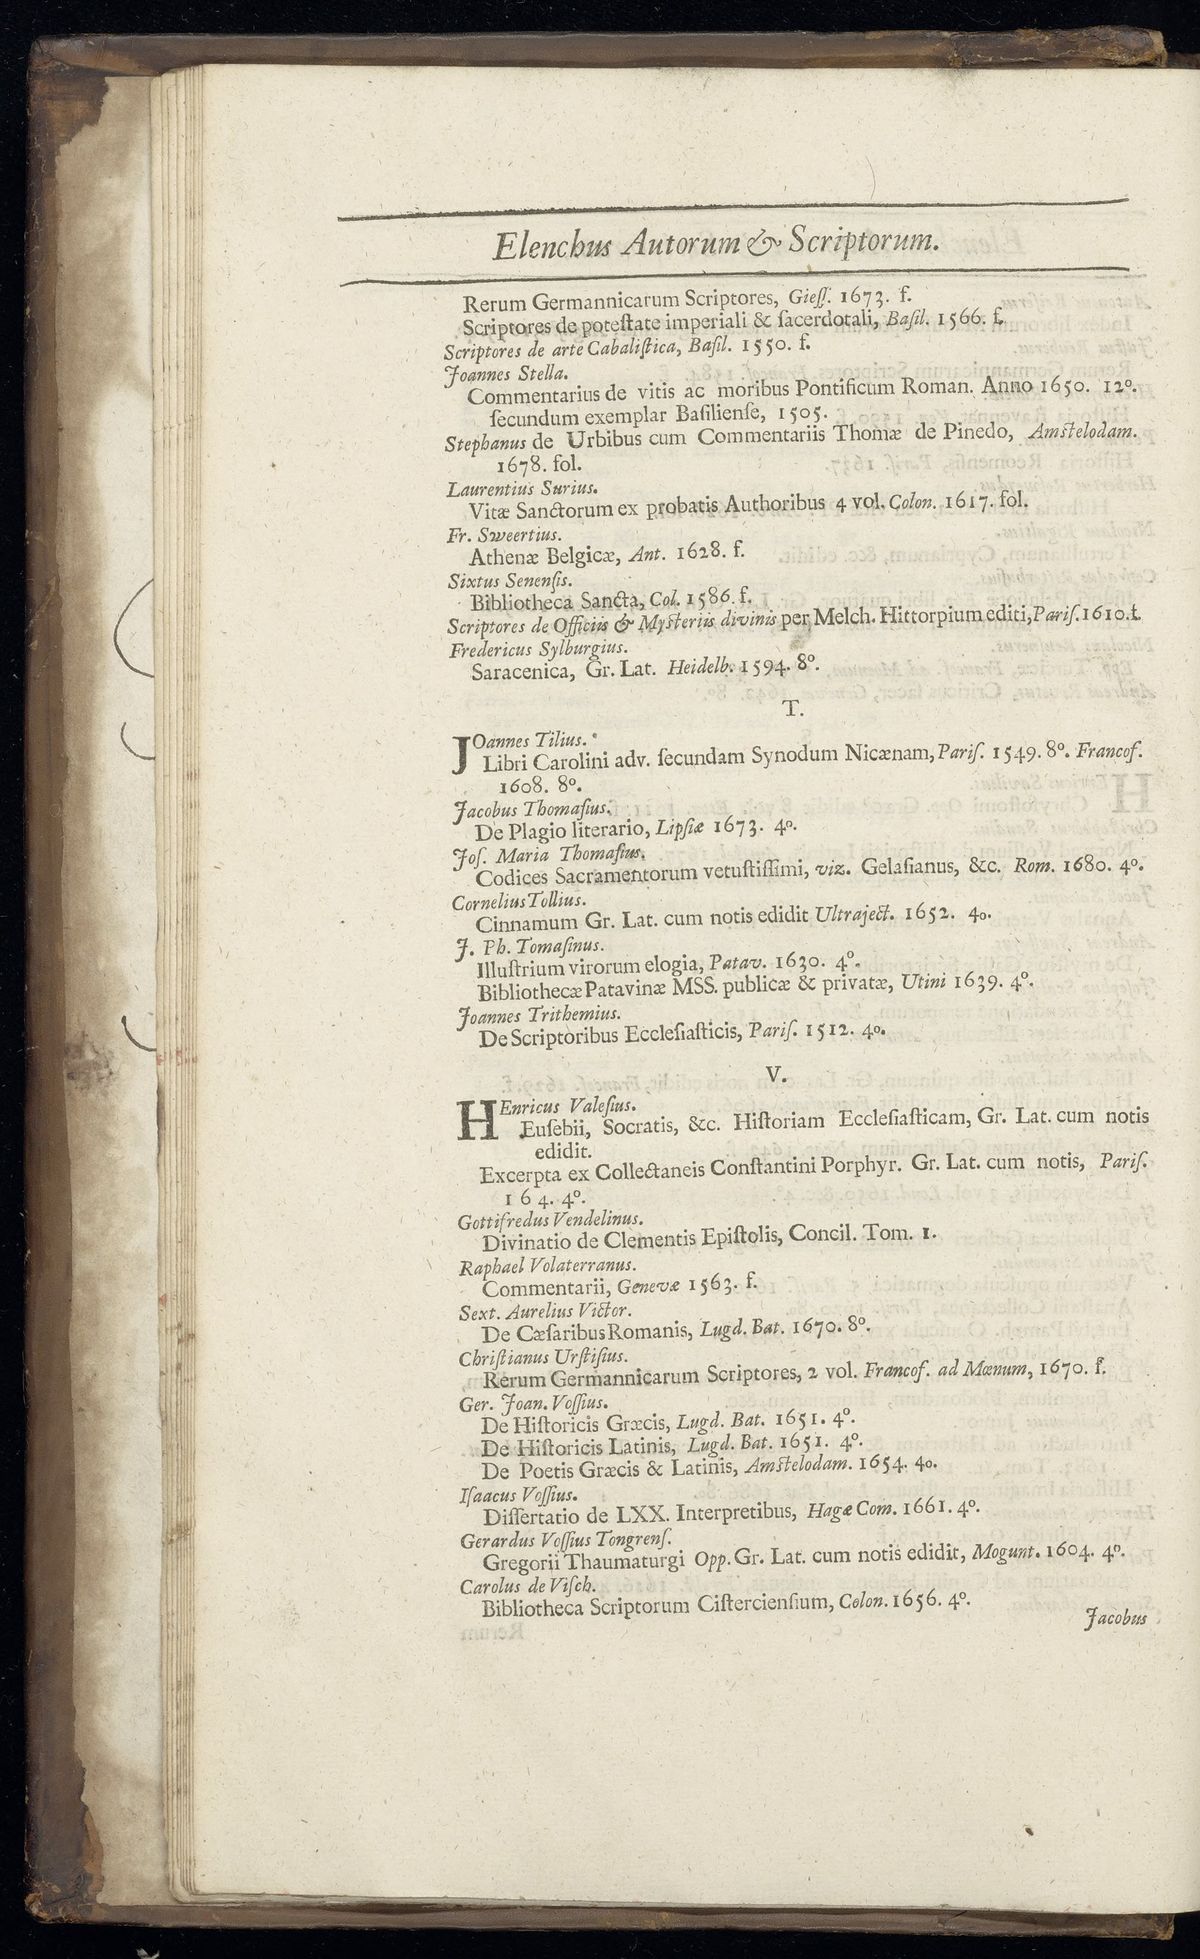 Elenchus Autorum & Scriptorum.
Rerum Germannicarum Scriptores, Gieſſ. 1673. f.
Scriptores de poteſtate imperiali & ſacerdotali, Baſil. 1566. f.
Scriptores de arte Cabaliſtica, Baſil. 1550. f.
Joannes Stella.
Commentarius de vitis ac moribus Pontificum Roman. Anno 1650. 12º.
ſecundum exemplar Baſilienſe, 1505.
Stephanus de Urbibus cum Commentariis Thomæ de Pinedo, Amſtelodam.
1678. fol.
Laurentius Surius.
Vitæ Sanctorum ex probatis Authoribus 4 vol. Colon. 1617. fol.
Fr. Sweertius.
Athenæ Belgicæ, Ant. 1628. f.
Sixtus Senenſis.
Bibliotheca Sancta, Col. 1586. f.
Scriptores de Officiis & Myſteriis divinis per Melch. Hittorpium editi, Pariſ. 1610. f.
Fredericus Sylburgius.
Saracenica, Gr. Lat. Heidelb. 1594. 8º.
T.
JOannes Tilius.
Libri Carolini adv. ſecundam Synodum Nicænam, Pariſ. 1549. 8º. Francof.
1608. 8º.
Jacobus Thomaſius.
De Plagio literario, Lipſiæ 1673. 4º.
Joſ. Maria Thomaſius.
Codices Sacramentorum vetuſtiſſimi, viz. Gelaſianus, &c. Rom. 1680. 4º.
Cornelius Tollius.
Cinnamum Gr. Lat. cum notis edidit Ultraject. 1652. 4o.
J. Ph. Tomaſinus.
Illuſtrium virorum elogia, Patav. 1630. 4º.
Bibliothecæ Patavinæ MSS. publicæ & privatæ, Utini 1639. 4º.
Joannes Trithemius.
De Scriptoribus Eccleſiaſticis, Pariſ. 1512. 4o.
V.
HEnricus Valeſius.
Euſebii, Socratis, &c. Hiſtoriam Eccleſiaſticam, Gr. Lat. cum notis
edidit.
Excerpta ex Collectaneis Conſtantini Porphyr. Gr. Lat. cum notis, Pariſ.
1 6 4. 4º.
Gottifredus Vendelinus.
Divinatio de Clementis Epiſtolis, Concil. Tom. 1.
Raphael Volaterranus.
Commentarii, Genevæ 1563. f.
Sext. Aurelius Victor.
De Cæſaribus Romanis, Lugd. Bat. 1670. 8º.
Chriſtianus Urſtiſius.
Rerum Germannicarum Scriptores, 2 vol. Francof. ad Mœnum, 1670. f.
Ger. Joan. Voſſius.
De Hiſtoricis Græcis, Lugd. Bat. 1651. 4º.
De Hiſtoricis Latinis, Lugd. Bat. 1651. 4º.
De Poetis Græcis & Latinis, Amſtelodam. 1654. 4o.
Iſaacus Voſſius.
Diſſertatio de LXX. Interpretibus, Hagæ Com. 1661. 4º.
Gerardus Voſſius Tongrenſ.
Gregorii Thaumaturgi Opp. Gr. Lat. cum notis edidit, Mogunt. 1604. 4º.
Carolus de Viſch.
Bibliotheca Scriptorum Ciſtercienſium, Colon. 1656. 4º.
Jacobus